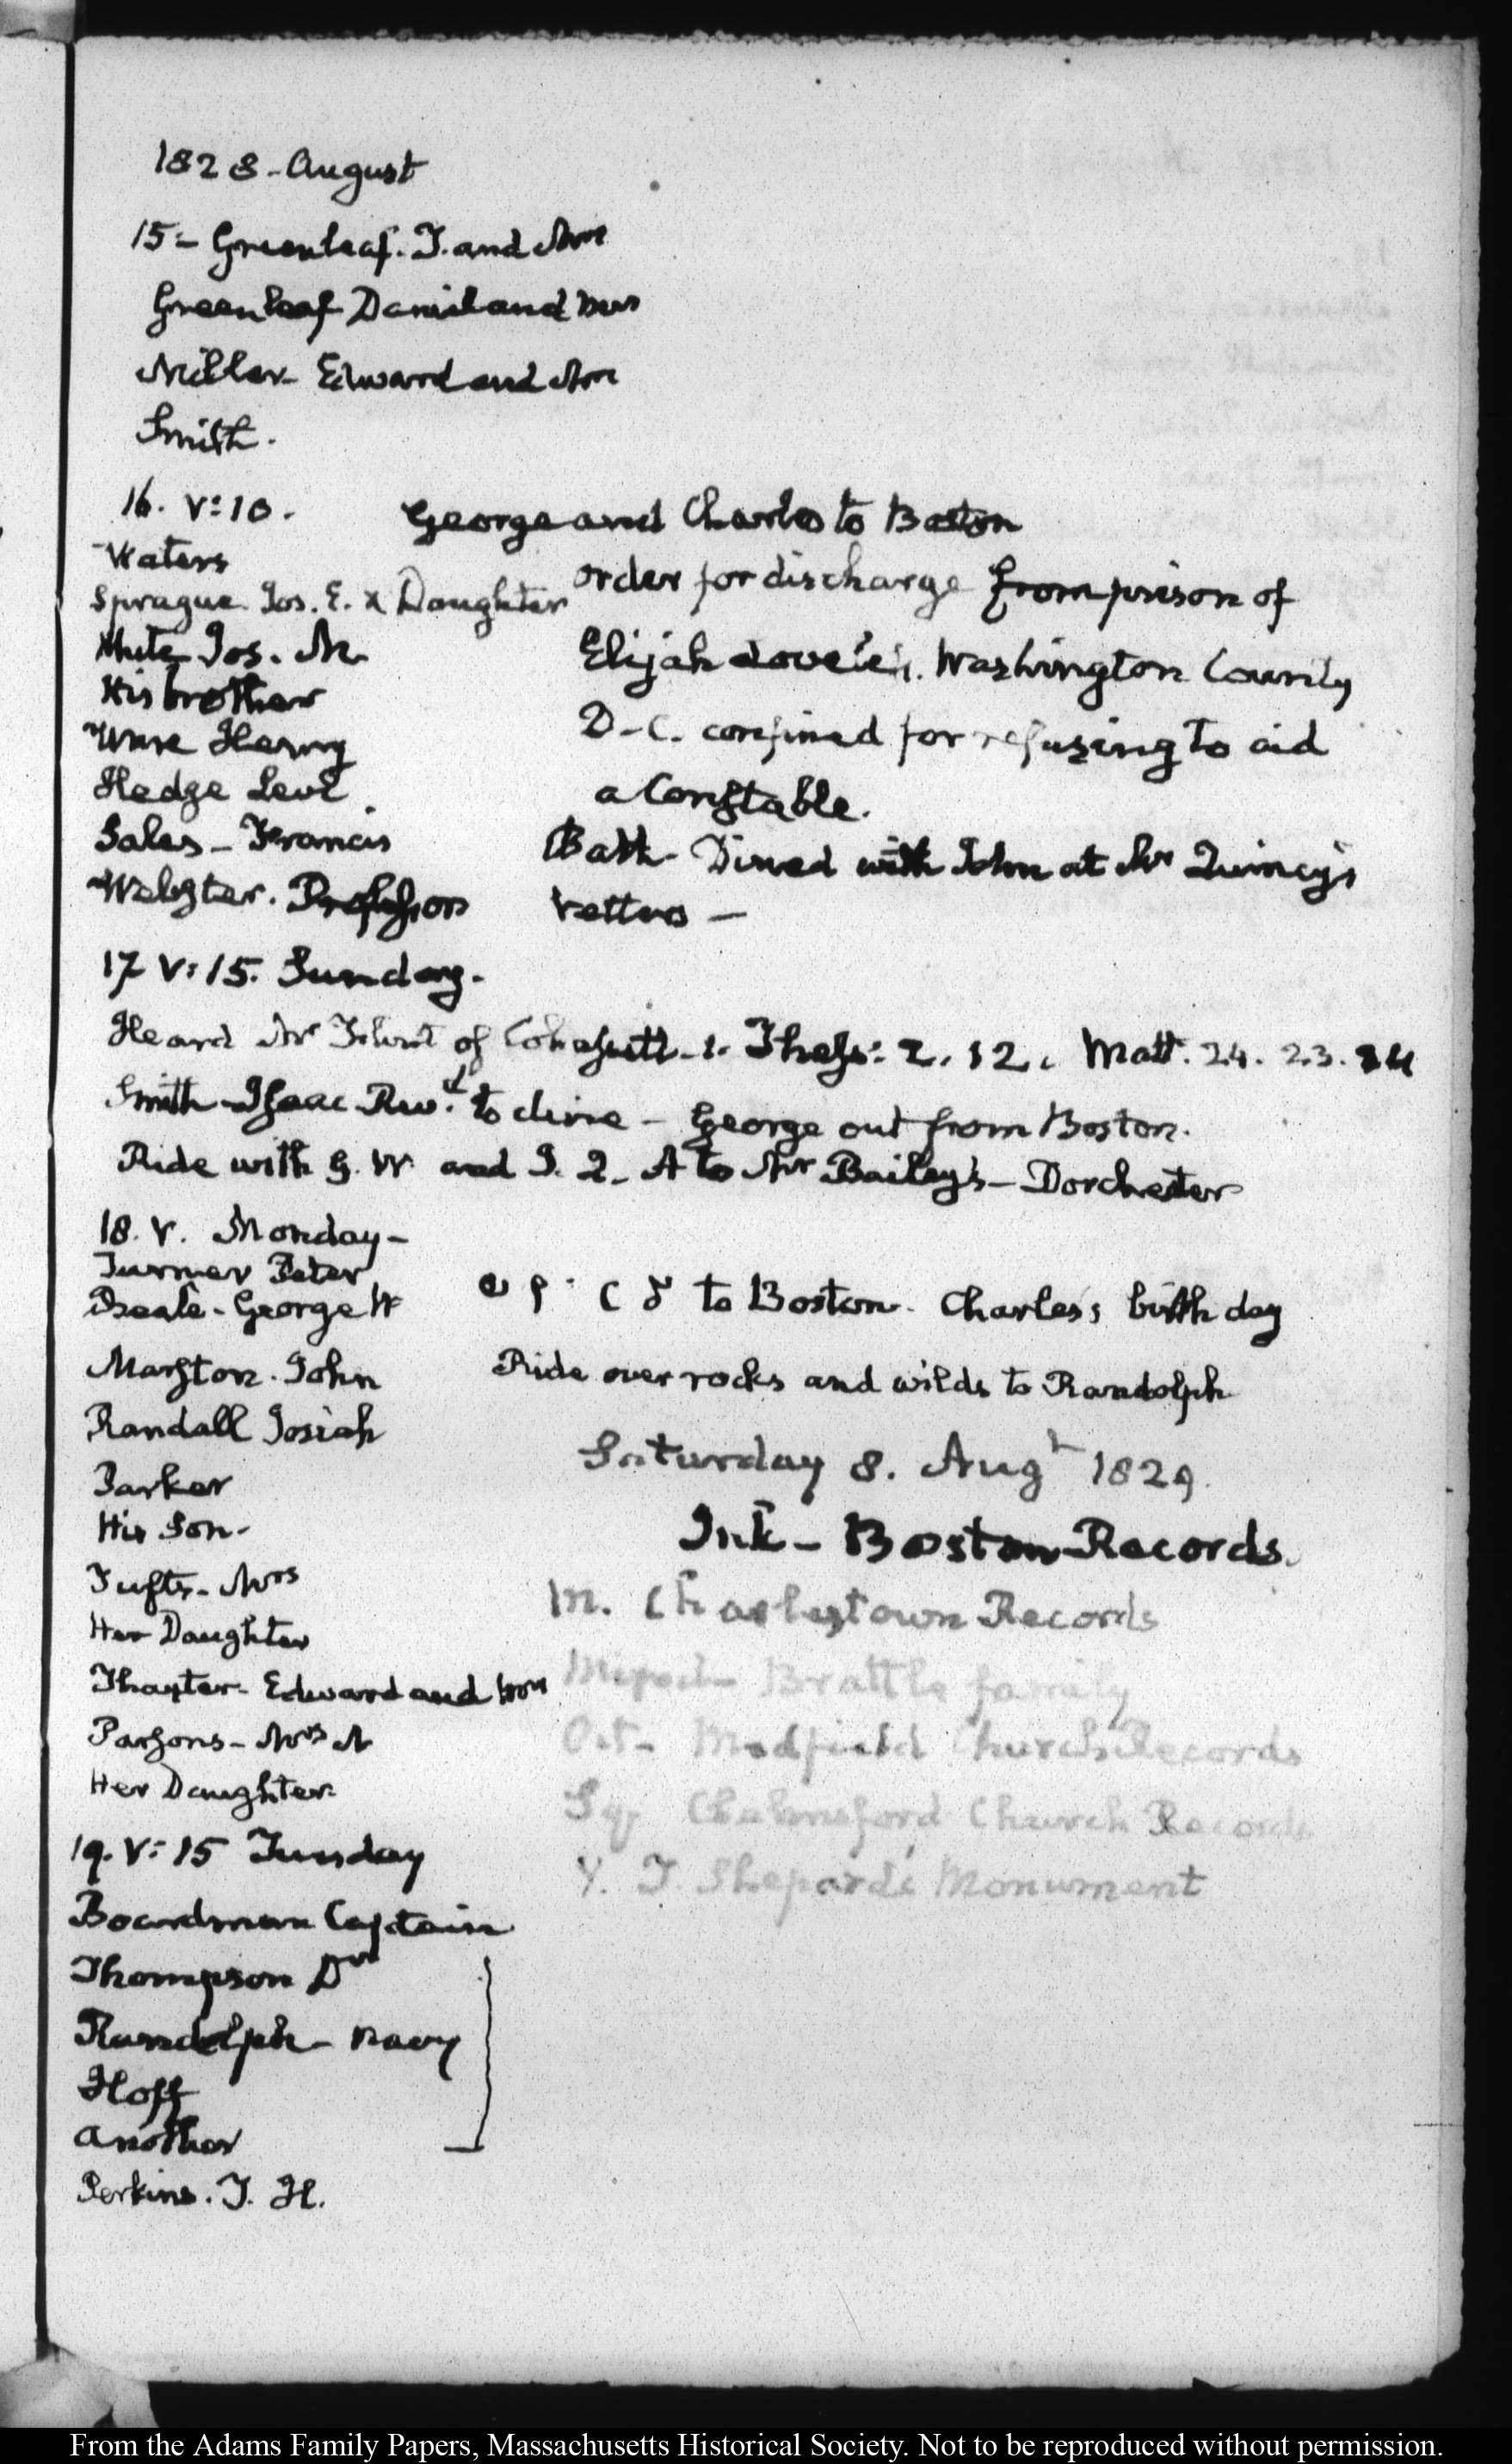 1828 - August
15 - Greenleaf. T. and Mrs
Greenleaf Daniel and Mrs
Miller - Edward and Mrs
Smith.
16. V:10. George and Charles to Boston
Waters
order for discharge from prison of
Sprague. Jos. E. & Daughter
White Jos. M.
Elijah Washington County
His brother
D.C. confined for refusing to aid
Ware Henry
Hedge Levi
a Constable.
Sales - Francis
Bath - Dined with John at Mr Quincy's
Webster. Professor
17 V:15. Sunday.
Heard Mr Flint of Cohassett - 1. Thess: 2. 12. Matt. 24. 23. 24
Smith - Isaac Revd. to dine - George out from Boston.
Ride with G. W and J. Q. A to Mr Bailey's - Dorchester
18. V. Monday -
Turner Peter
to Boston. Charles's birth day
Beale - George W
Marston. John
Ride over rocks and wilds to Randolph
Randall Josiah
Saturday 8. Augt 1829.
Parker
His Son -
Ink - Boston Records.
Tufts - Mrs
M. Charlestown Records
Her Daughter
Thayter - Edward and
Brattle family
Parsons - Mrs N
Oct - Medfield Church Records
Her Daughter
Chelmsford Church Records
19. V:15 Tuesday
Y. T. Shepard's Monument
Boardman Captain
Thompson Dr
Randolph - Navy
Hoff
another
Perkins. T. H.
From the Adams Family Papers, Massachusetts Historical Society. Not to be reproduced without permission.